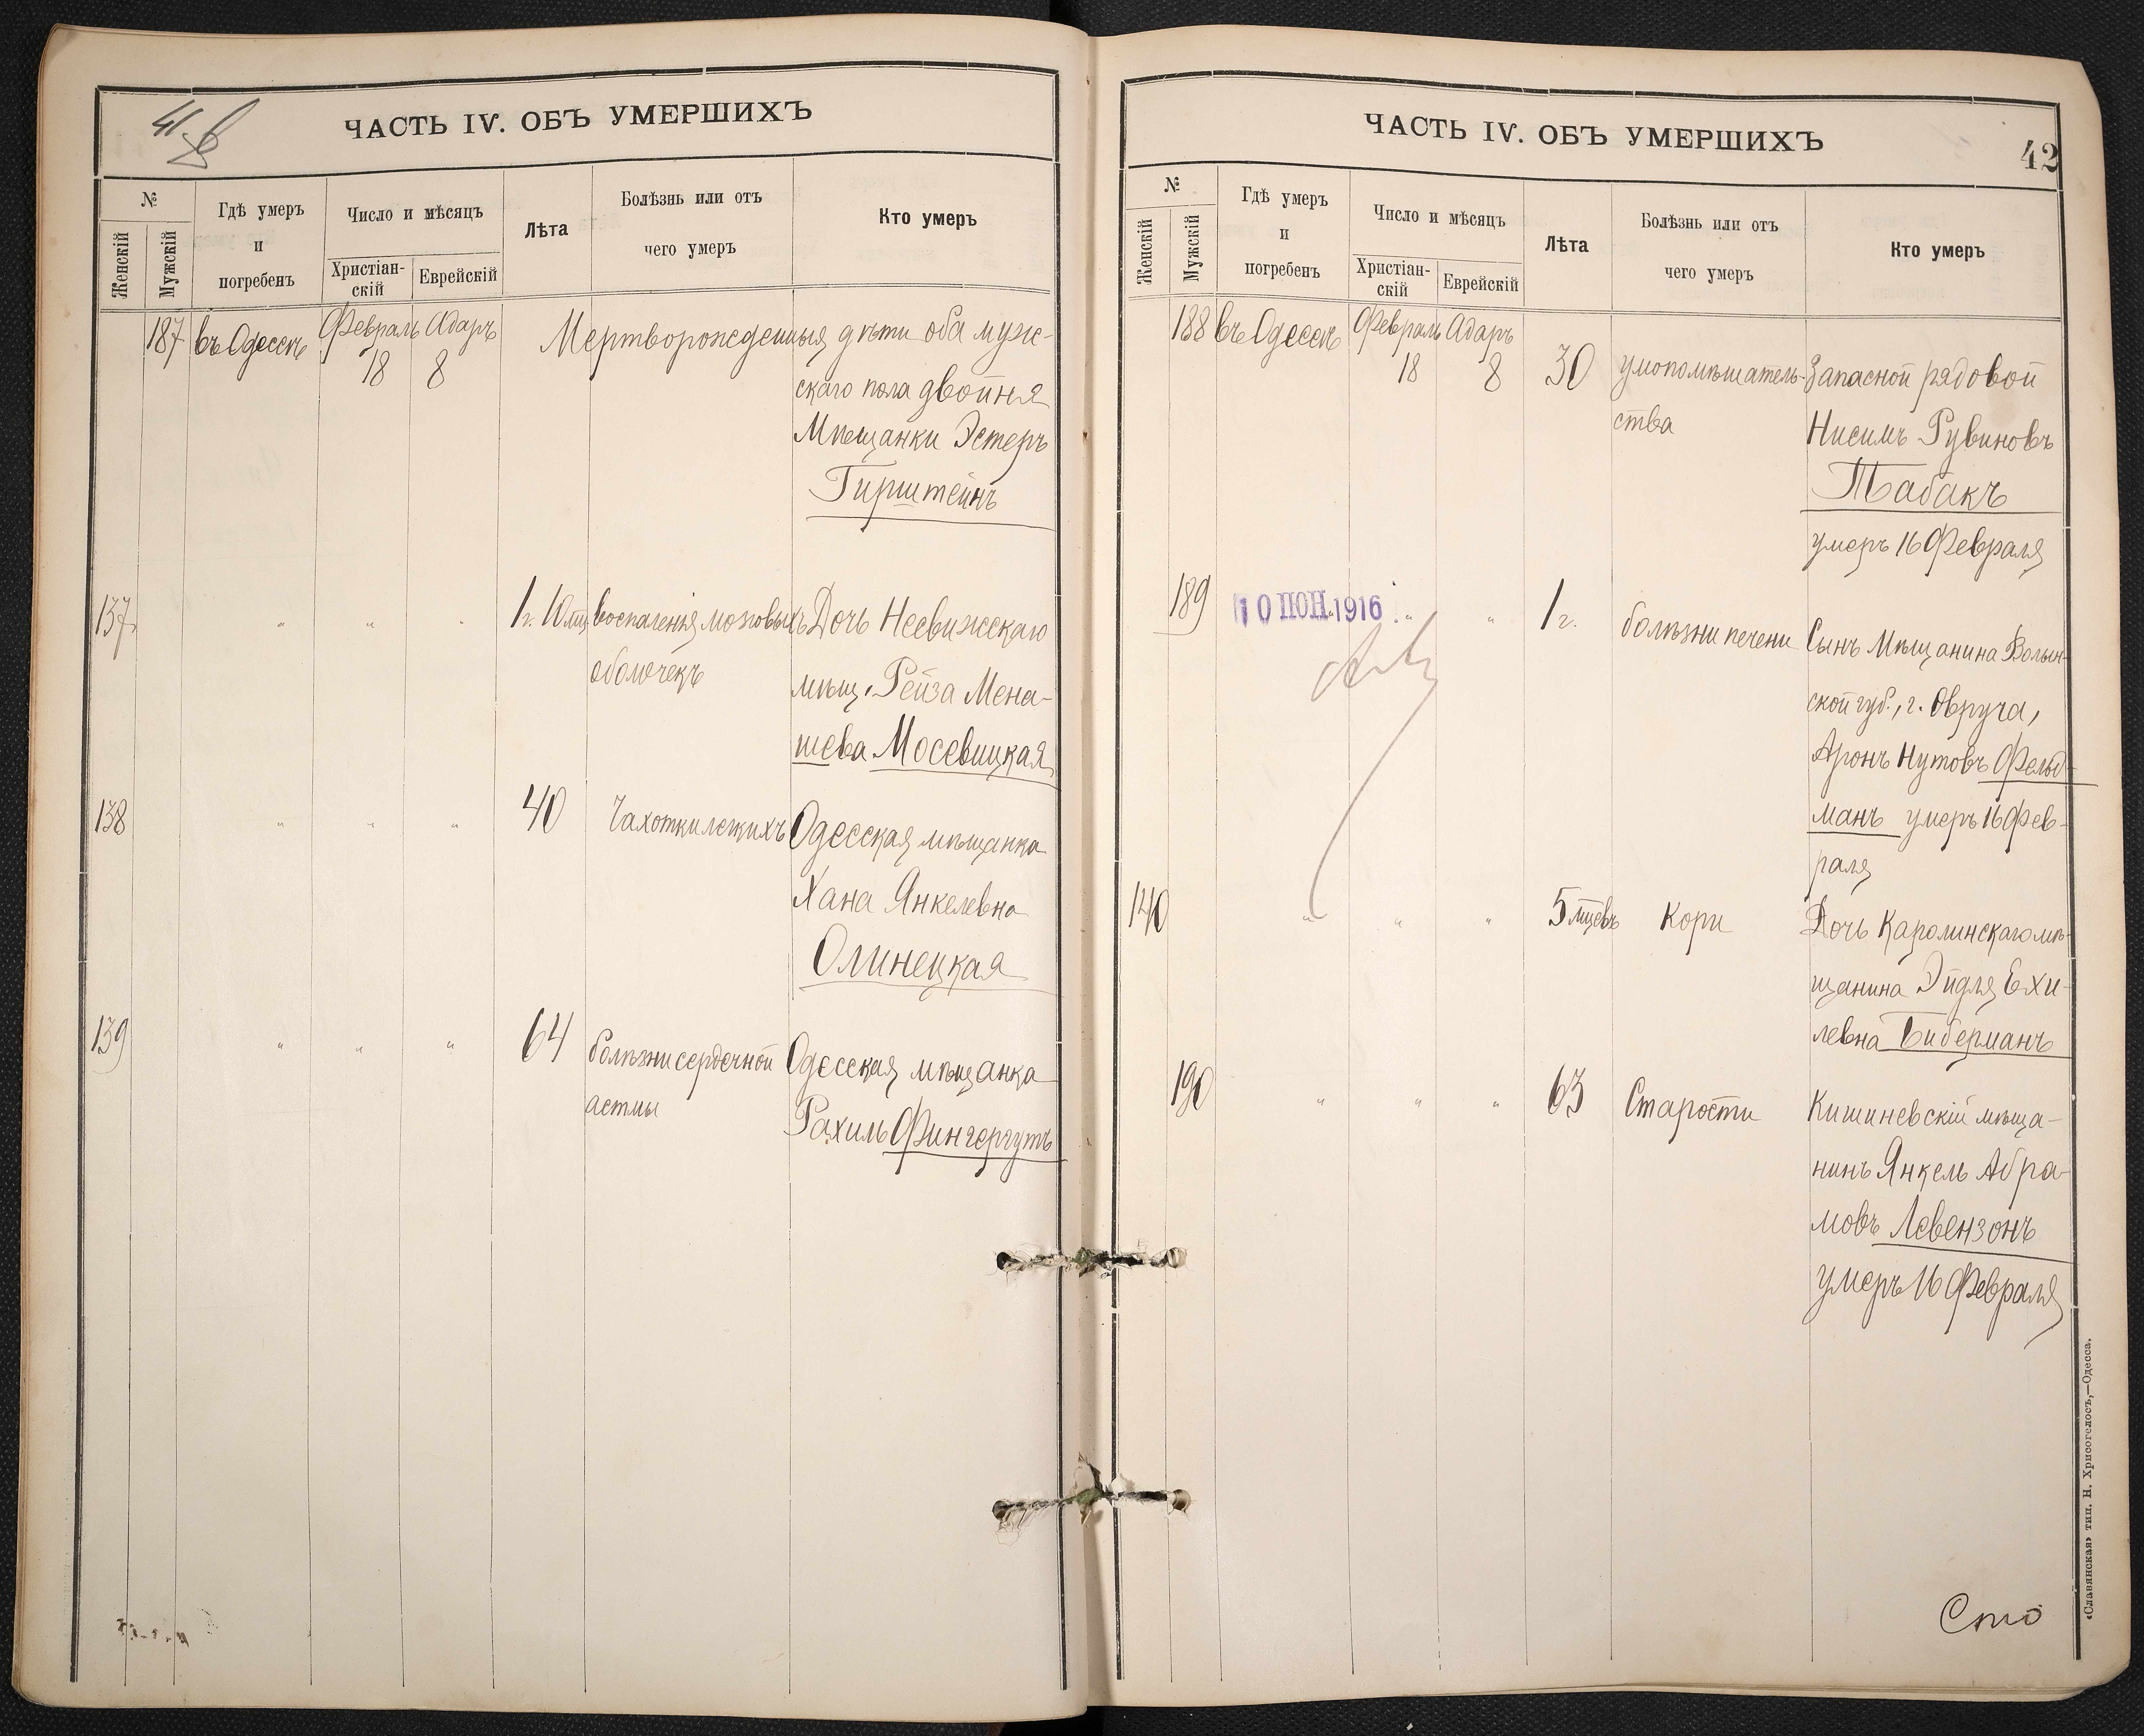 41
ЧАСТЬ IV. ОБЪ УМЕРШИХЪ
№
Женскій
Мужскій
Гдѣ умеръ
и
погребенъ
Число и мѣсяцъ
Христіан-
скій
Еврейскій
Лѣта
Болѣзнь или отъ
чего умеръ
Кто умеръ
187 въ Одессѣ Февраль Адаръ Мертворожденныя дѣти оба муж-
18 8 скаго пола двойня
Мѣщанки Эстеръ
Гирштейнъ
137 " " " 1 г. 10 мц воспаленія мозговыхъ Дочь Несвижскаго
оболочекъ мѣщ. Рейза Мена-
шева Мосевицкая
138 " " " 40 Чахотки легкихъ Одесская мѣщанка
Хана Янкелевна
Олинецкая
139 " " " 64 болѣзни сердечной Одесская мѣщанка
астмы Рахиль Фингергутъ
ЧАСТЬ IV. ОБЪ УМЕРШИХЪ
42
№
Женскій
Мужскій
Гдѣ умеръ
и
погребенъ
Число и мѣсяцъ
Христіан-
скій
Еврейскій
Лѣта
Болѣзнь или отъ
чего умеръ
Кто умеръ
188 въ Одессѣ Февраль Адаръ
18 8 30 умопомѣшатель- Запасной рядовой
ства Нисимъ Рувиновъ
Табакъ
умеръ 16 Февраля
189 10 ІЮН. 1916 " " 1 г. болѣзни печени Сынъ Мѣщанина Волын-
ской губ., г. Овруча,
Аронъ Нутовъ Фельд-
манъ умеръ 16 Фев-
раля
140 " " " 5 мцевъ Кори Дочь Каролинскаго мѣ-
щанина Эйдля Ехи-
левна Биберманъ
190 " " " 63 Старости Кишиневскій мѣща-
нинъ Янкель Абра-
мовъ Левензонъ
умеръ 16 Февраля
Сто
«Славянская» тип. Н. Хрисогелосъ,—Одесса.